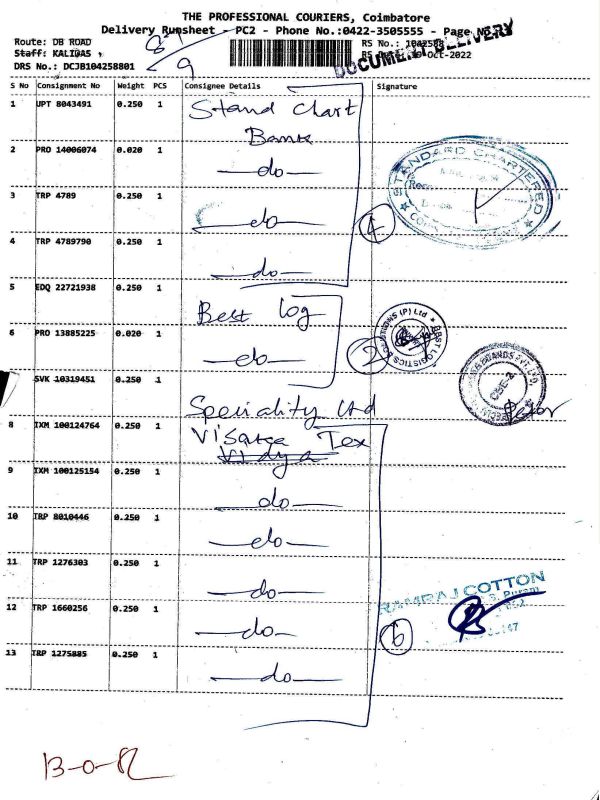 THE PROFESSIONAL COURIERS, Coimbatore
Delivery Runsheet - PC2 - Phone No.:0422-3505555 - Page
Route: DB ROAD
Staff: KALIDAS
DRS No.: DCJB104258801
8/9
RS No.:
Oct-2022
DOCUMENT DELIVERY
S No Consignment No Weight PCS Consignee Details Signature
1 UPT 8043491 0.250 1 Stand Chart
Bank
2 PRO 14006074 0.020 1 —do—
3 TRP 4789 0.250 1 —do—
4 TRP 4789790 0.250 1 —do—
4
STANDARD CHARTERED
5 EDQ 22721938 0.250 1 Best Log
6 PRO 13885225 0.020 1 —do—
2
BEST LOGISTICS SOLUTIONS (P) Ltd
SVK 10319451 0.250 1 Speciality Ltd
CBE-2
8 IXM 100124764 0.250 1 Visatex Tex
9 IXM 100125154 0.250 1 —do—
10 TRP 8010446 0.250 1 —do—
11 TRP 1276303 0.250 1 —do—
12 TRP 1660256 0.250 1 —do—
13 TRP 1275885 0.250 1 —do—
6
RAMRAJ COTTON
13-0-